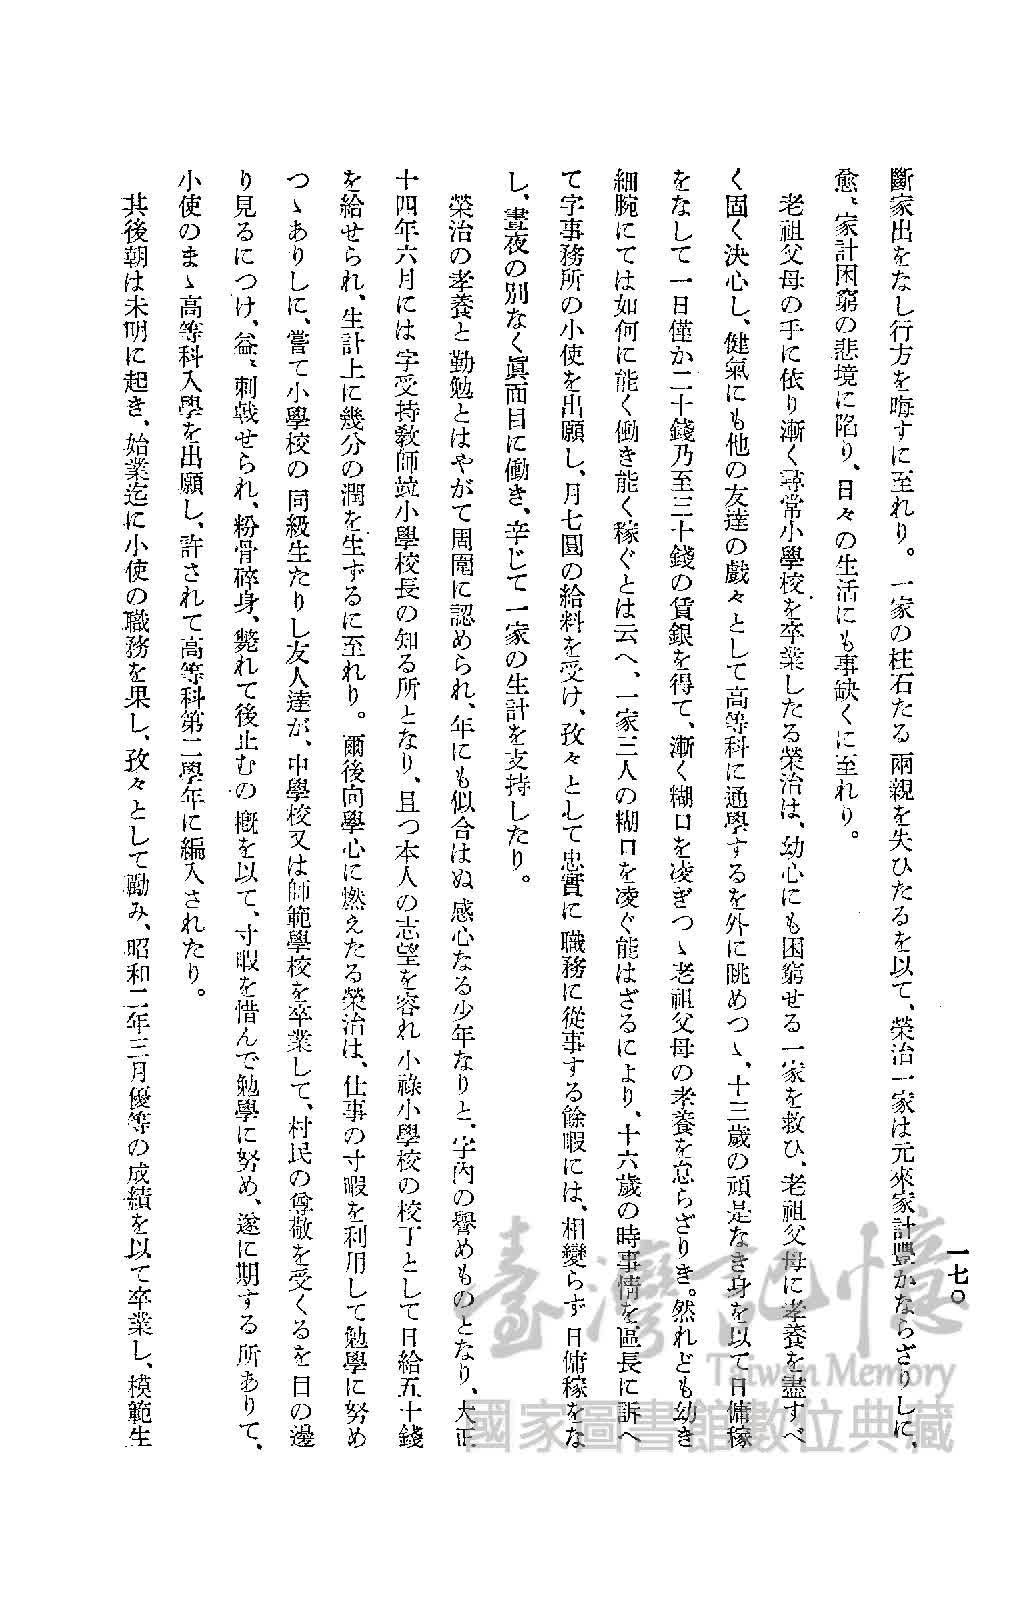 一七〇
斷家出をなし行方を晦すに至れり。一家の柱石たる兩親を失ひたるを以て、榮治一家は元來家計豐かならざりしに、
愈〻家計困窮の悲境に陷り、日々の生活にも事缺くに至れり。
老祖父母の手に依り漸く尋常小學校を卒業したる榮治は、幼心にも困窮せる一家を救ひ、老祖父母に孝養を盡すべ
く固く決心し、健氣にも他の友達の戲々として高等科に通學するを外に眺めつゝ、十三歲の頑是なき身を以て日傭稼
をなして一日僅か二十錢乃至三十錢の賃銀を得て、漸く糊口を凌ぎつゝ老祖父母の孝養を怠らざりき。然れども幼き
細腕にては如何に能く働き能く稼ぐとは云へ、一家三人の糊口を凌ぐ能はざるにより、十六歲の時事情を區長に訴へ
て字事務所の小使を出願し、月七圓の給料を受け、孜々として忠實に職務に從事する餘暇には、相變らず日傭稼をな
し、晝夜の別なく眞面目に働き、辛じて一家の生計を支持したり。
榮治の孝養と勤勉とはやがて周圍に認められ、年にも似合はぬ感心なる少年なりと、字內の譽めものとなり、大正
十四年六月には字受持敎師竝小學校長の知る所となり、且つ本人の志望を容れ小祿小學校の校丁として日給五十錢
を給せられ、生計上に幾分の潤を生ずるに至れり。爾後向學心に燃えたる榮治は、仕事の寸暇を利用して勉學に努め
つゝありしに、嘗て小學校の同級生たりし友人達が、中學校又は師範學校を卒業して、村民の尊敬を受くるを目の邊
り見るにつけ、益〻刺戟せられ、粉骨碎身、斃れて後止むの槪を以て、寸暇を惜んで勉學に努め、遂に期する所ありて、
小使のまゝ高等科入學を出願し、許されて高等科第二學年に編入されたり。
其後朝は未明に起き、始業迄に小使の職務を果し、孜々として勵み、昭和二年三月優等の成績を以て卒業し、模範生
臺灣記憶
Taiwan Memory
國家圖書館數位典藏